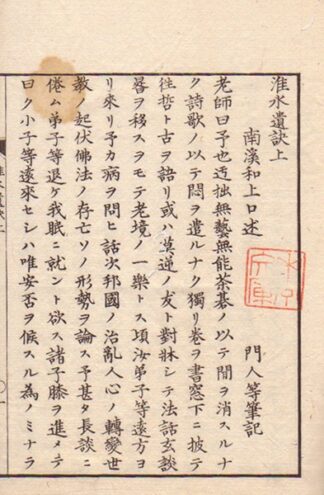 淮水遺訣上
南溪和上口述
門人等筆記
老師曰予也迂拙無藝無能茶碁ノ以テ間ヲ消スルナ
ク詩歌ノ以テ悶ヲ遣ルナク獨リ卷ヲ書窓下ニ披テ
徃哲ト古ヲ語リ或ハ莫逆ノ友ト對牀シテ法話玄談
晷ヲ移スヲモテ老境ノ一樂トス頃汝弟子等遠方ヨ
リ來リ予カ病ヲ問ヒ話次邦國ノ治亂人心ノ轉變世
教ノ起伏佛法ノ存亡ソノ形勢ヲ論ス予甚タ長談ニ
倦ム弟子等退ケ我眠ニ就ント欲ス諸子膝ヲ進メテ
曰ク小子等遠來セシハ唯安否ヲ候スル為ノミナラ